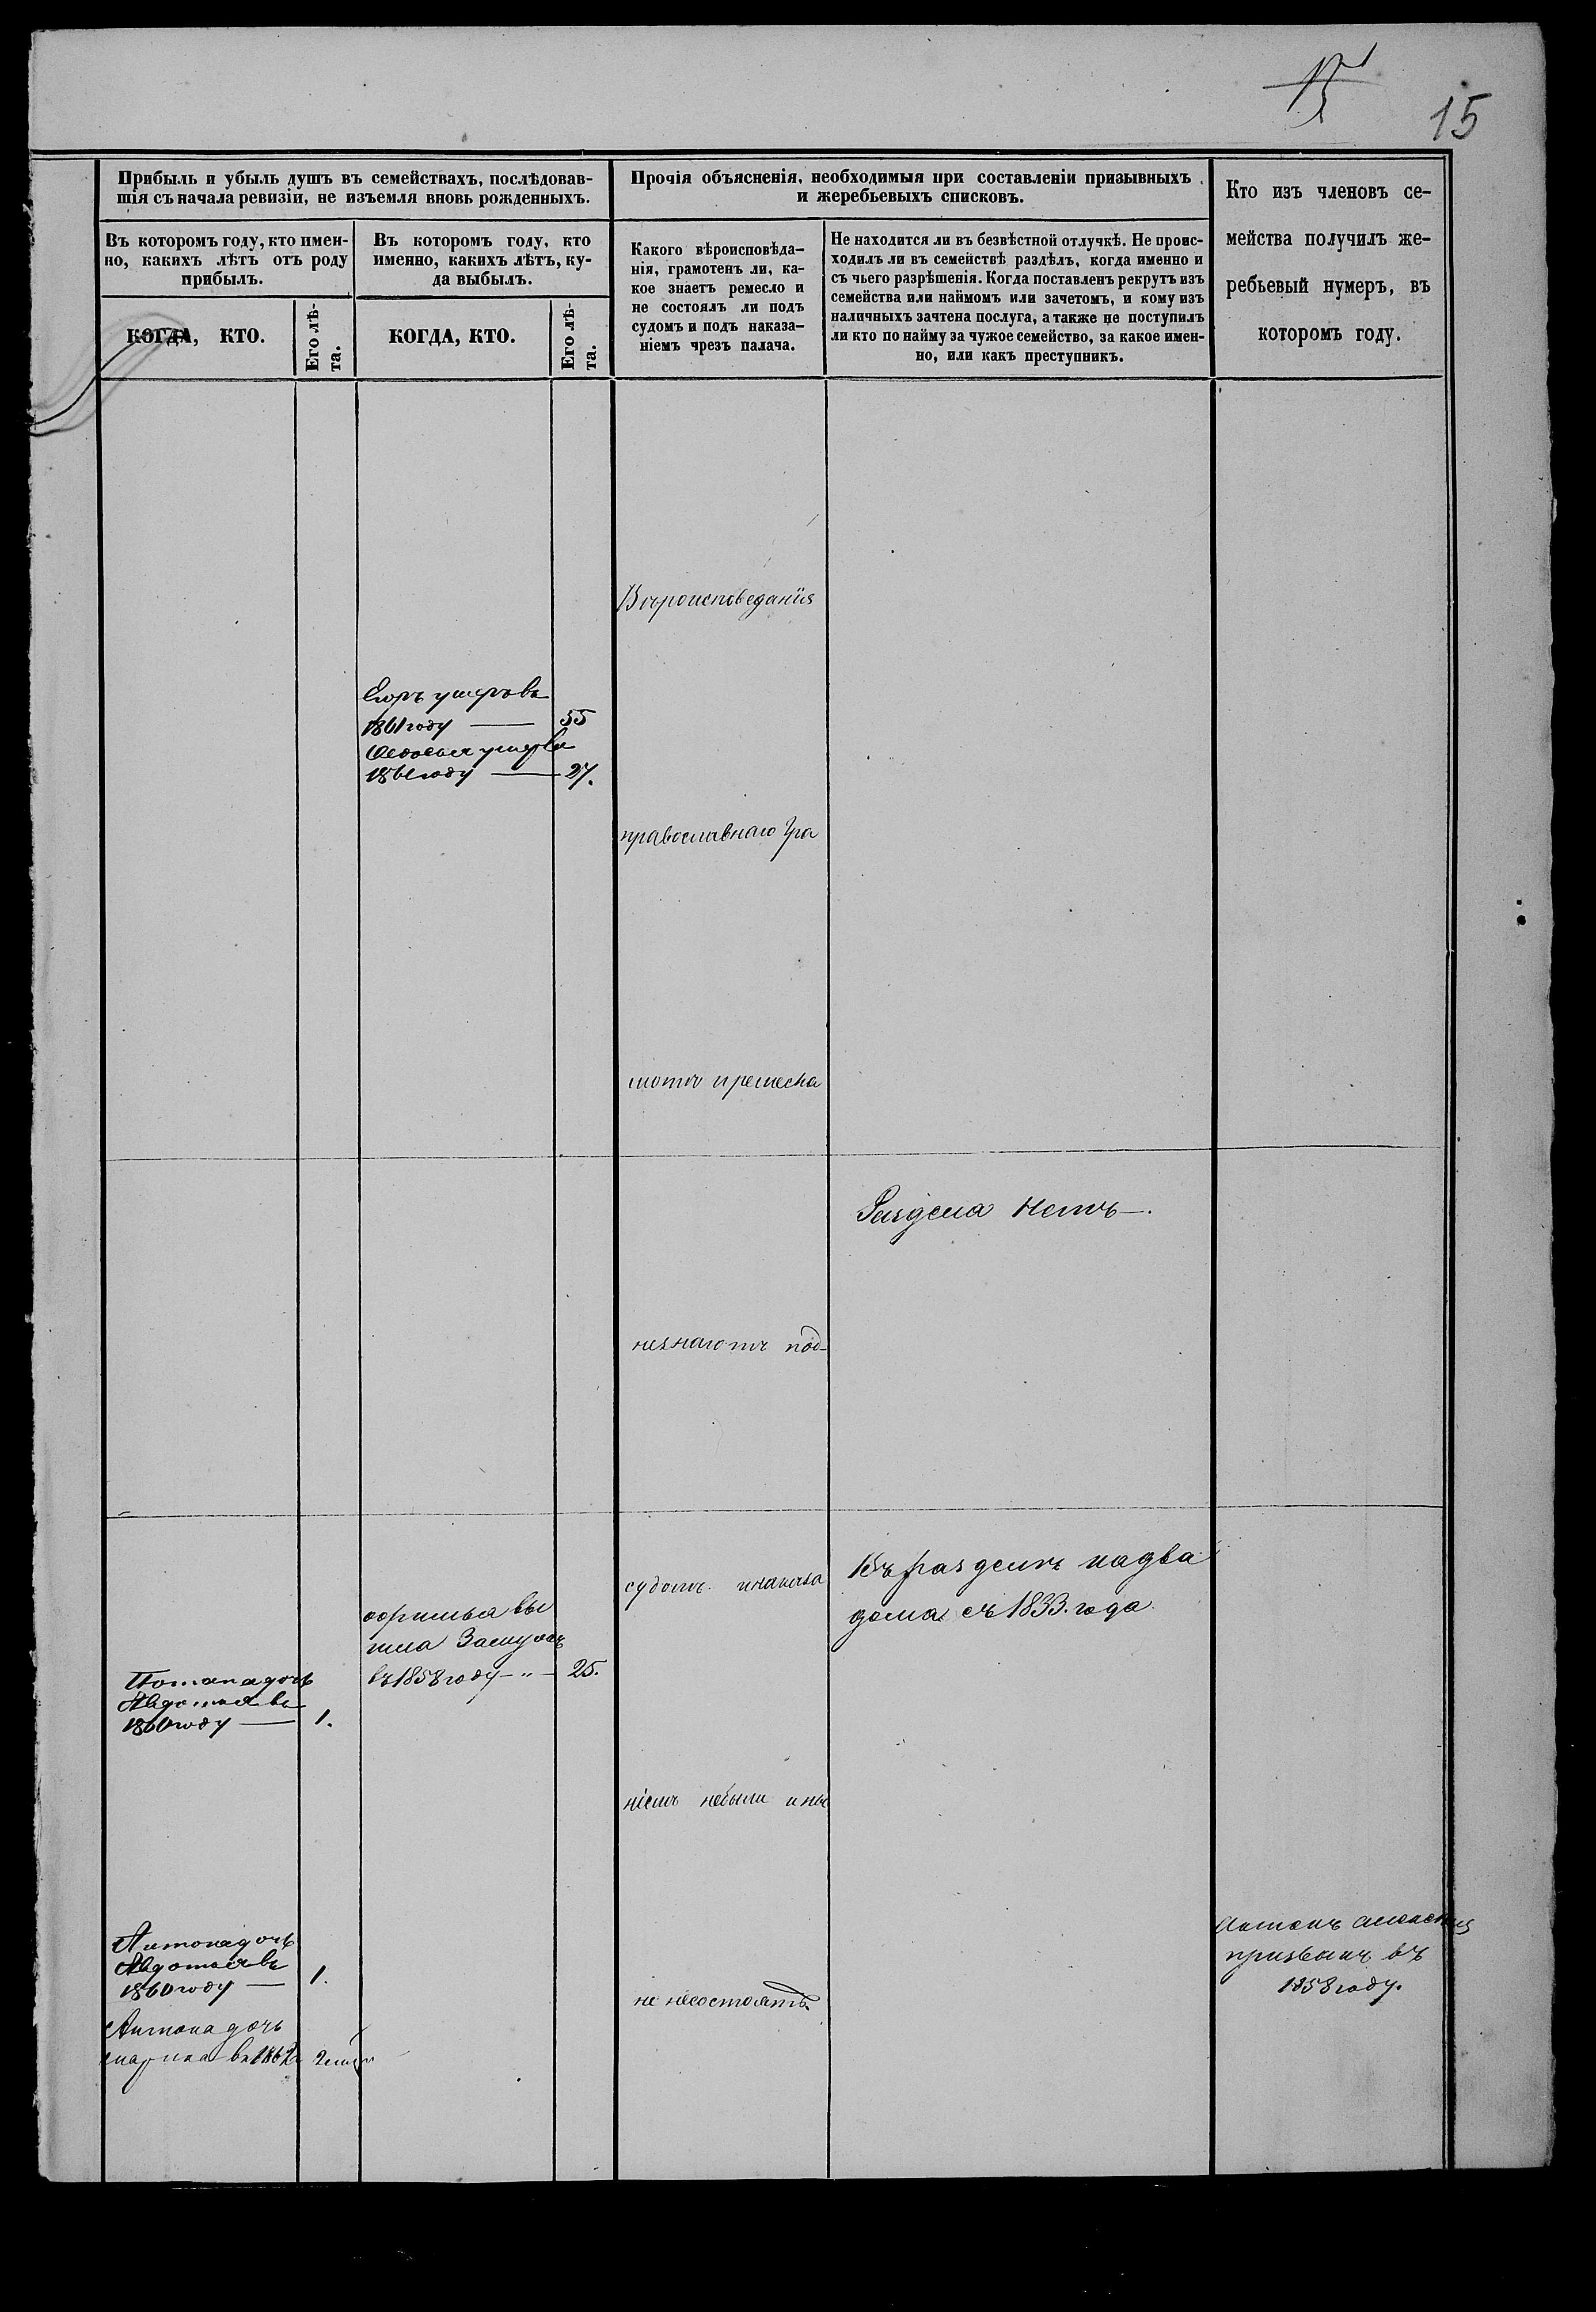 15
15
Прибыль и убыль душъ въ семействахъ, послѣдовав-
шія съ начала ревизіи, не изъемля вновь рожденныхъ.
Прочія объясненія, необходимыя при составленіи призывныхъ
и жеребьевыхъ списковъ.
Кто изъ членовъ се-
мейства получилъ же-
ребьевый нумеръ, въ
которомъ году.
Въ которомъ году, кто имен-
но, какихъ лѣтъ отъ роду
прибылъ.
Въ которомъ году, кто
именно, какихъ лѣтъ, ку-
да выбылъ.
Какого вѣроисповѣда-
нія, грамотенъ ли, ка-
кое знаетъ ремесло и
не состоялъ ли подъ
судомъ и подъ наказа-
ніемъ чрезъ палача.
Не находится ли въ безвѣстной отлучкѣ. Не проис-
ходилъ ли въ семействѣ раздѣлъ, когда именно и
съ чьего разрѣшенія. Когда поставленъ рекрутъ изъ
семейства или наймомъ или зачетомъ, и кому изъ
наличныхъ зачтена послуга, а также не поступилъ
ли кто по найму за чужое семейство, за какое имен-
но, или какъ преступникъ.
КОГДА, КТО.
Его лѣ-
та.
КОГДА, КТО.
Его лѣ-
та.
Вѣроисповеданія
Егоръ умеръ въ
1861 году — 55
Федосья умерла
1861 году — 27.
православнаго Гра
мотѣ и ремесла
Раздела нетъ —.
незнаютъ под-
судомъ. инаказа
Въ разделѣ надва
дома съ 1833. года.
вы
шла Замужъ
въ 1858 году — " — 25.
Потапа дочь
Авдотья въ
1860 году — 1.
ніемъ небыли и ны
Антона дочь
Авдотья въ
1860 году — 1.
Антонъ
призванъ въ
1858 году.
не несостоятъ
Антона дочь
марина въ 1862